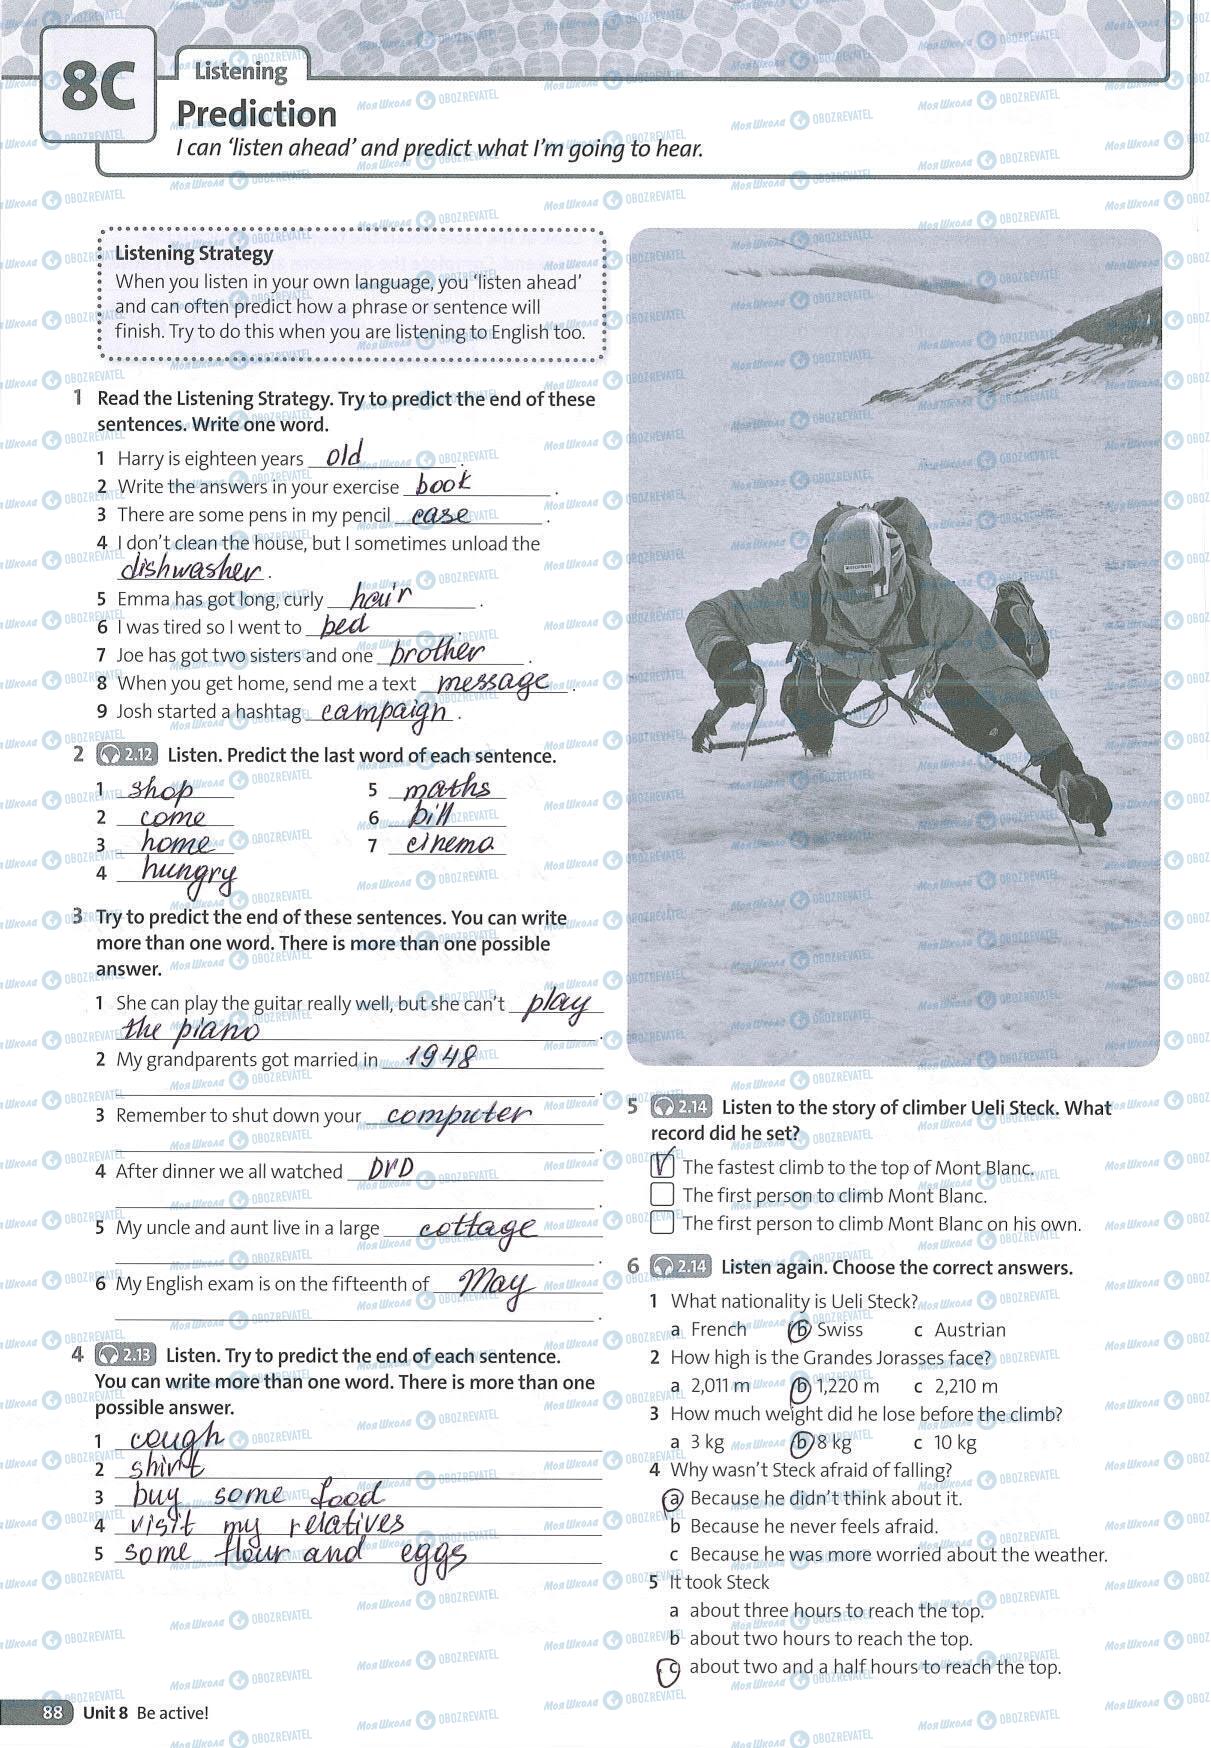 8C
Listening
Prediction
I can 'listen ahead' and predict what I'm going to hear.
Listening Strategy
When you listen in your own language, you 'listen ahead'
and can often predict how a phrase or sentence will
finish. Try to do this when you are listening to English too.
1 Read the Listening Strategy. Try to predict the end of these
sentences. Write one word.
1 Harry is eighteen years old.
2 Write the answers in your exercise book.
3 There are some pens in my pencil case.
4 I don't clean the house, but I sometimes unload the
dishwasher.
5 Emma has got long, curly hair.
6 I was tired so I went to bed.
7 Joe has got two sisters and one brother.
8 When you get home, send me a text message.
9 Josh started a hashtag campaign.
2 2.12 Listen. Predict the last word of each sentence.
1 shop 5 maths
2 come 6 bill
3 home 7 cinema
4 hungry
3 Try to predict the end of these sentences. You can write
more than one word. There is more than one possible
answer.
1 She can play the guitar really well, but she can't play
the piano.
2 My grandparents got married in 1948
.
3 Remember to shut down your computer
.
4 After dinner we all watched DVD
.
5 My uncle and aunt live in a large cottage
.
6 My English exam is on the fifteenth of May
.
4 2.13 Listen. Try to predict the end of each sentence.
You can write more than one word. There is more than one
possible answer.
1 cough
2 shirt
3 buy some food
4 visit my relatives
5 some flour and eggs
5 2.14 Listen to the story of climber Ueli Steck. What
record did he set?
V The fastest climb to the top of Mont Blanc.
The first person to climb Mont Blanc.
The first person to climb Mont Blanc on his own.
6 2.14 Listen again. Choose the correct answers.
1 What nationality is Ueli Steck?
a French b Swiss c Austrian
2 How high is the Grandes Jorasses face?
a 2,011 m b 1,220 m c 2,210 m
3 How much weight did he lose before the climb?
a 3 kg b 8 kg c 10 kg
4 Why wasn't Steck afraid of falling?
a Because he didn't think about it.
b Because he never feels afraid.
c Because he was more worried about the weather.
5 It took Steck
a about three hours to reach the top.
b about two hours to reach the top.
c about two and a half hours to reach the top.
88 Unit 8 Be active!
Моя Школа OBOZREVATEL